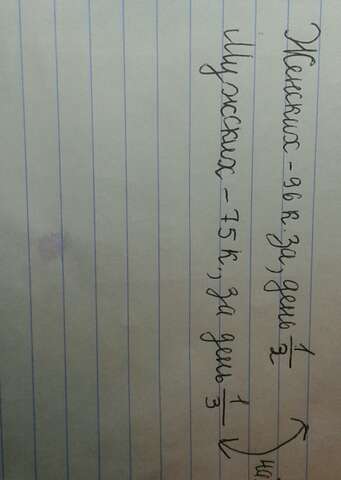 Женских - 96 к. за, день 1/2
Мужских - 75 к., за день 1/3
на